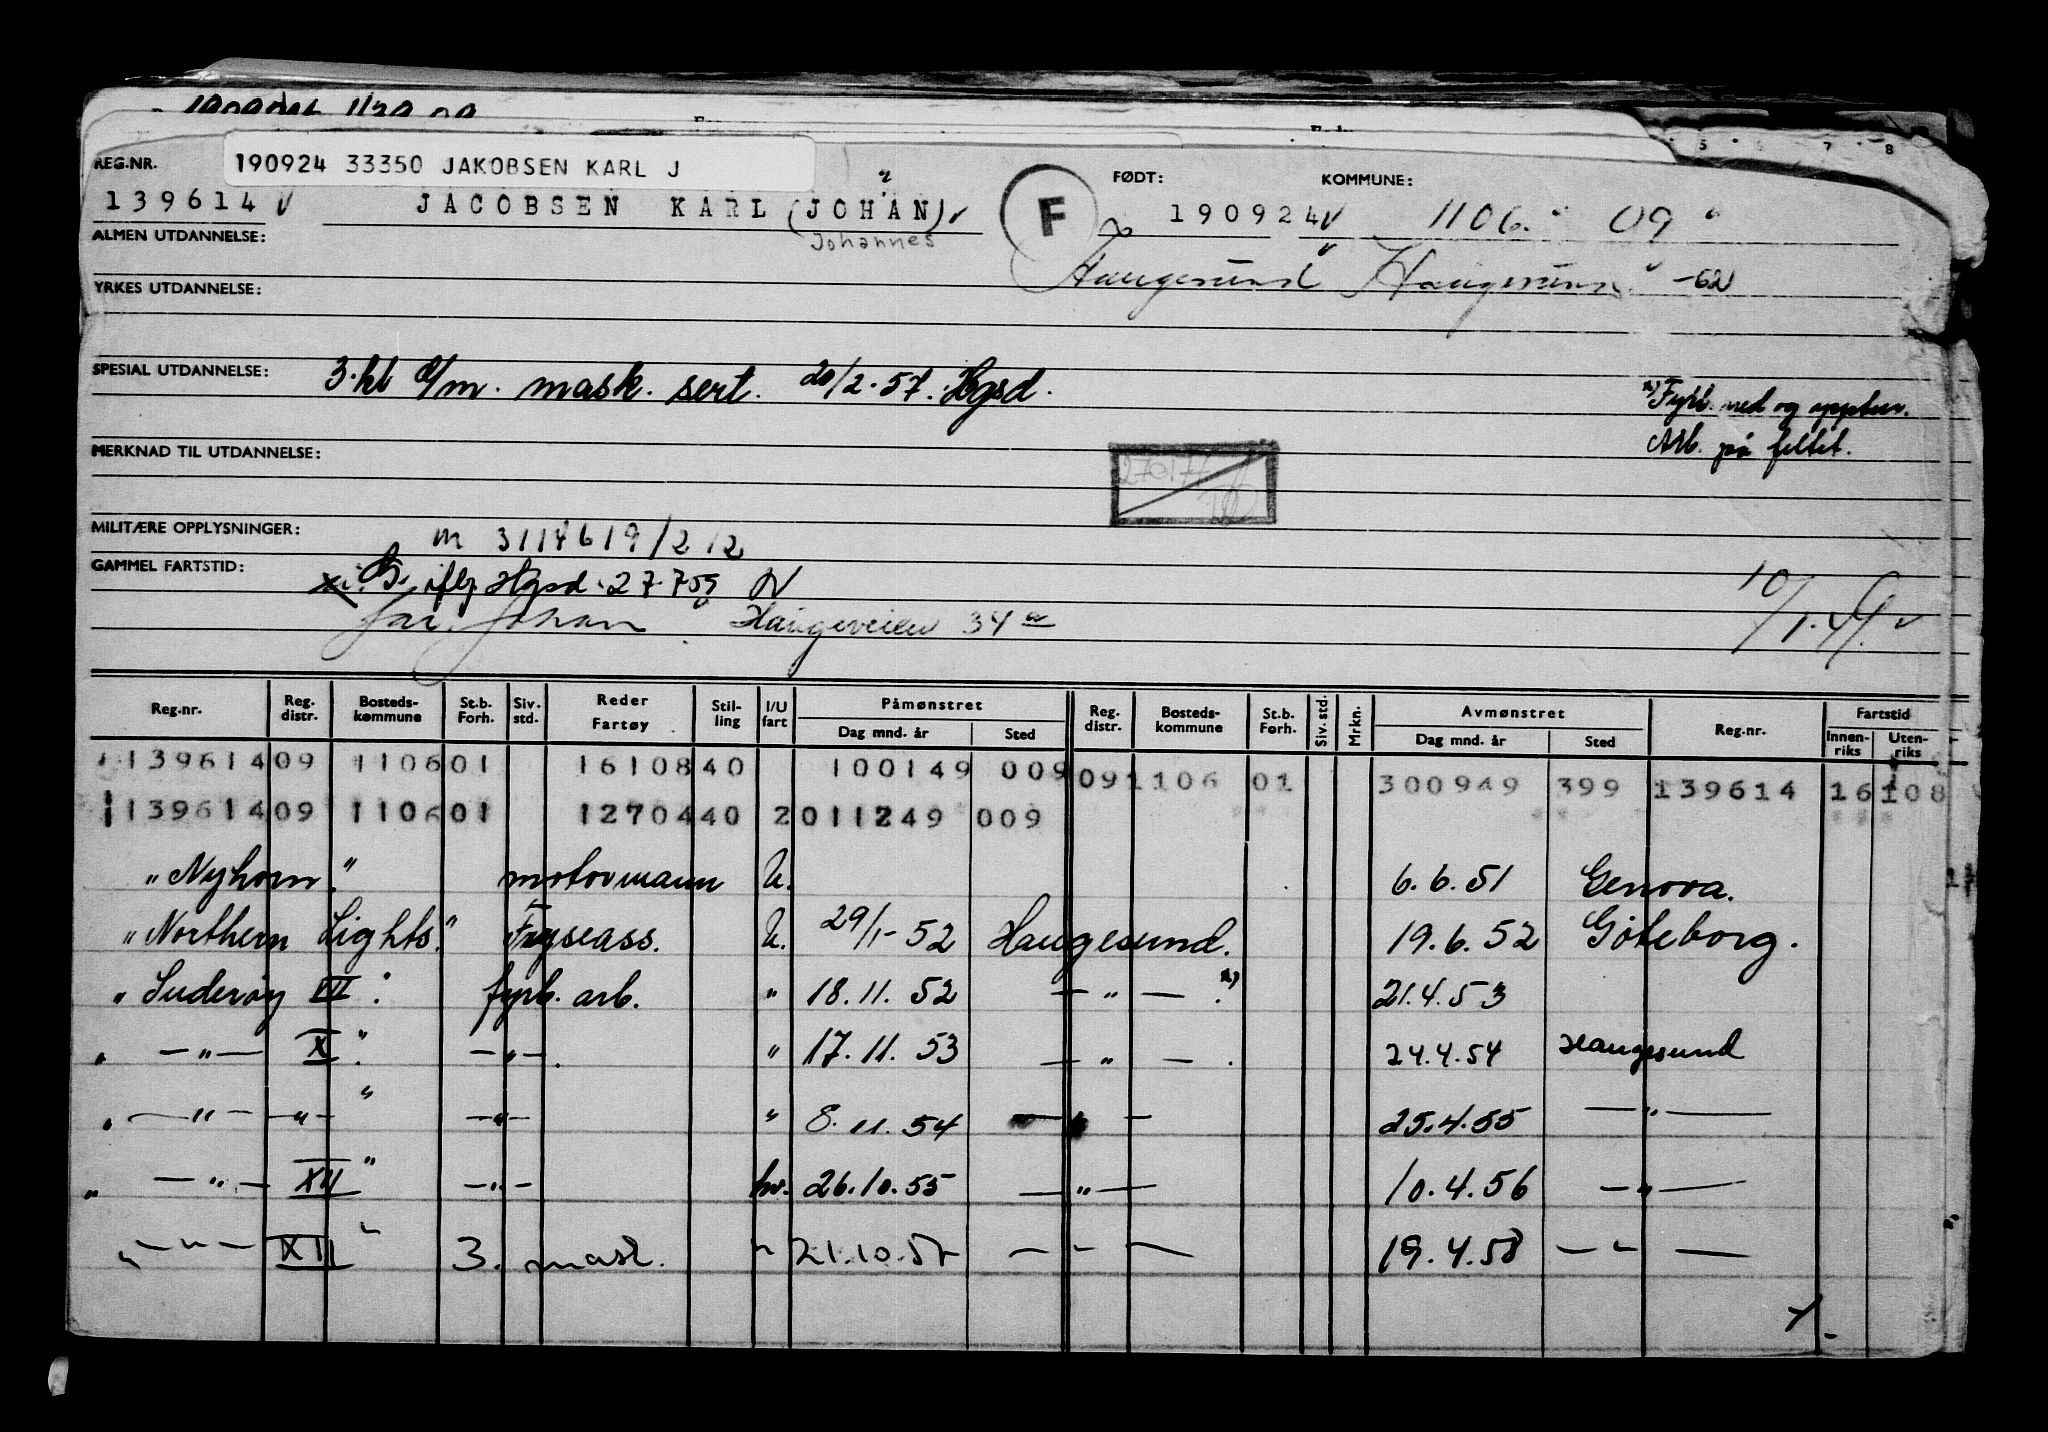 190924 33350 JAKOBSEN KARL J
REG.NR. FØDT: KOMMUNE:
139614 JACOBSEN KARL (JOHAN) F 190924 1106. 09
Johannes
ALMEN UTDANNELSE:
Haugesund Haugesund -62
YRKES UTDANNELSE:
SPESIAL UTDANNELSE: 3.kl mask. sert. 20/2.57. Hgsd.
x) Fyrb. ned og opptur.
Arb. på feltet.
MERKNAD TIL UTDANNELSE:
270177
MILITÆRE OPPLYSNINGER: m 3114619/212
GAMMEL FARTSTID: iflg Hgsd. 27.7.59
far, Johan Haugeveien 34 10/1.49
Reg.nr. Reg. distr. Bosteds-kommune St.b. Forh. Siv. std. Reder Fartøy Stil-ling I/U fart Påmønstret Dag mnd. år Sted Reg. distr. Bosteds-kommune St.b. Forh. Siv. std. Mrkn. Avmønstret Dag mnd. år Sted Reg.nr. Fartstid Innen-riks Uten-riks
139614 09 1106 01 16108 40 100149 009 09 1106 01 300949 399 139614 16108
139614 09 1106 01 12704 40 2 011249 009
"Nyhorn." motormann U. 6.6.51 Genova.
"Northern Lights." Fryseass. U. 29/1-52 Haugesund. 19.6.52 Göteborg.
"Suderøy VI". fyrb. arb. " 18.11.52 — " — . x) 21.4.53
" — " — X". — " — . " 17.11.53 — " — . 24.4.54 Haugesund
" — " — " — " — " — " 8.11.54 — " — 25.4.55 — " —
" — " — XII" — " — hv. 26.10.55 — " — 10.4.56 — " —
" — " — XII" 3. mask. " 21.10.57 — " — 19.4.58 — " —